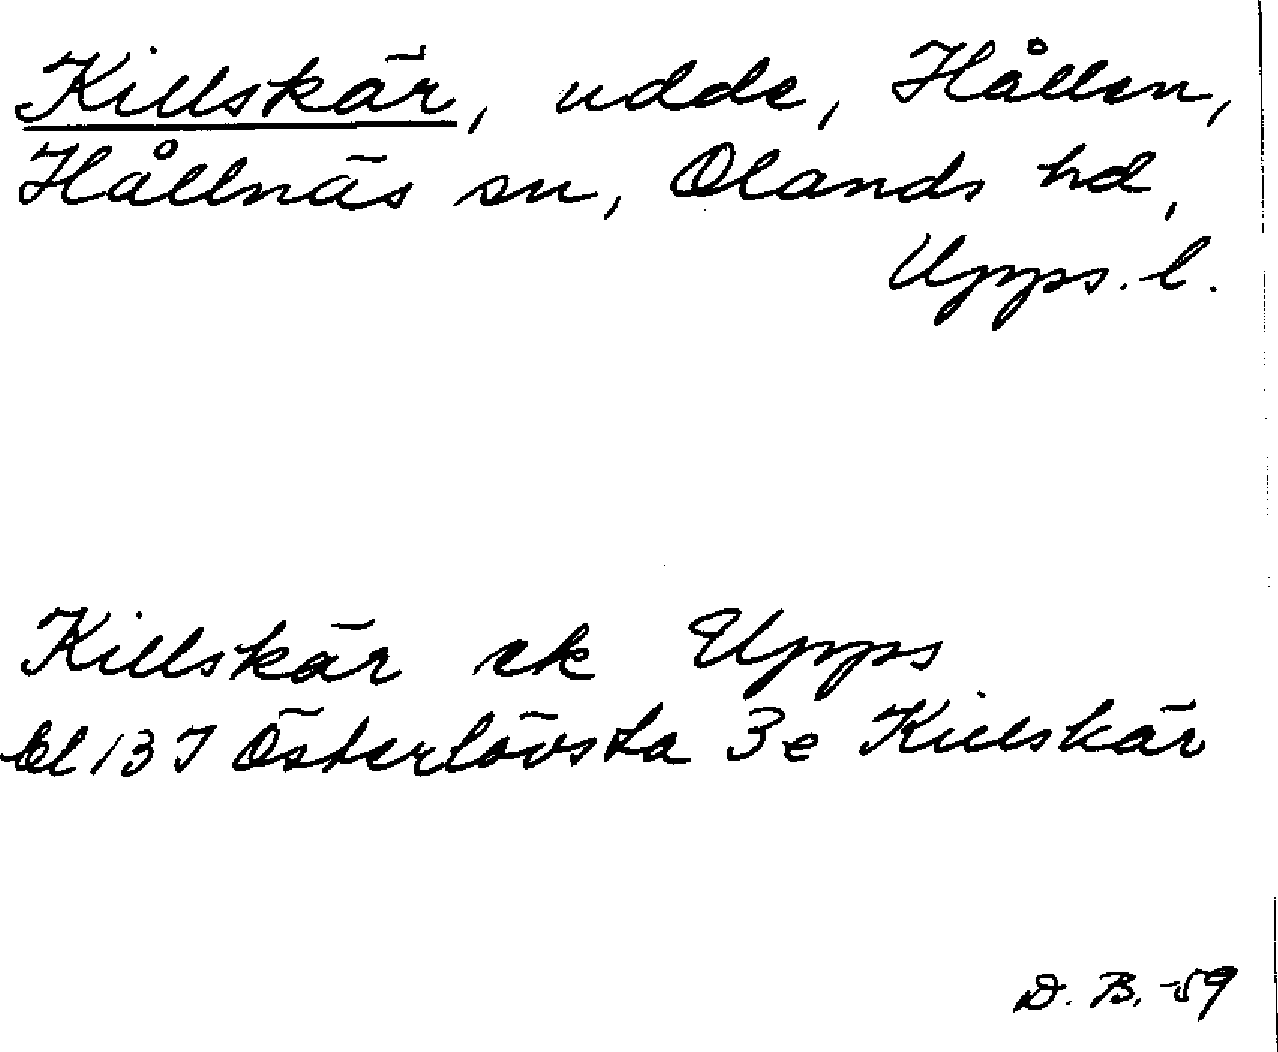 Killskär, udde, Hållen,
Hållnäs sn, Olands hd,
Upps. l.
Killskär ek Upps
bl 13 I Österlövsta 3e Killskär
D. B. -59